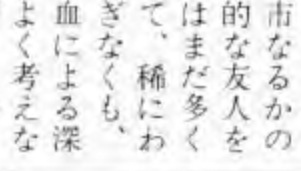 市なるかの
的な友人を
はまだ多く
て、稀にわ
ぎなくも、
血による深
よく考えな